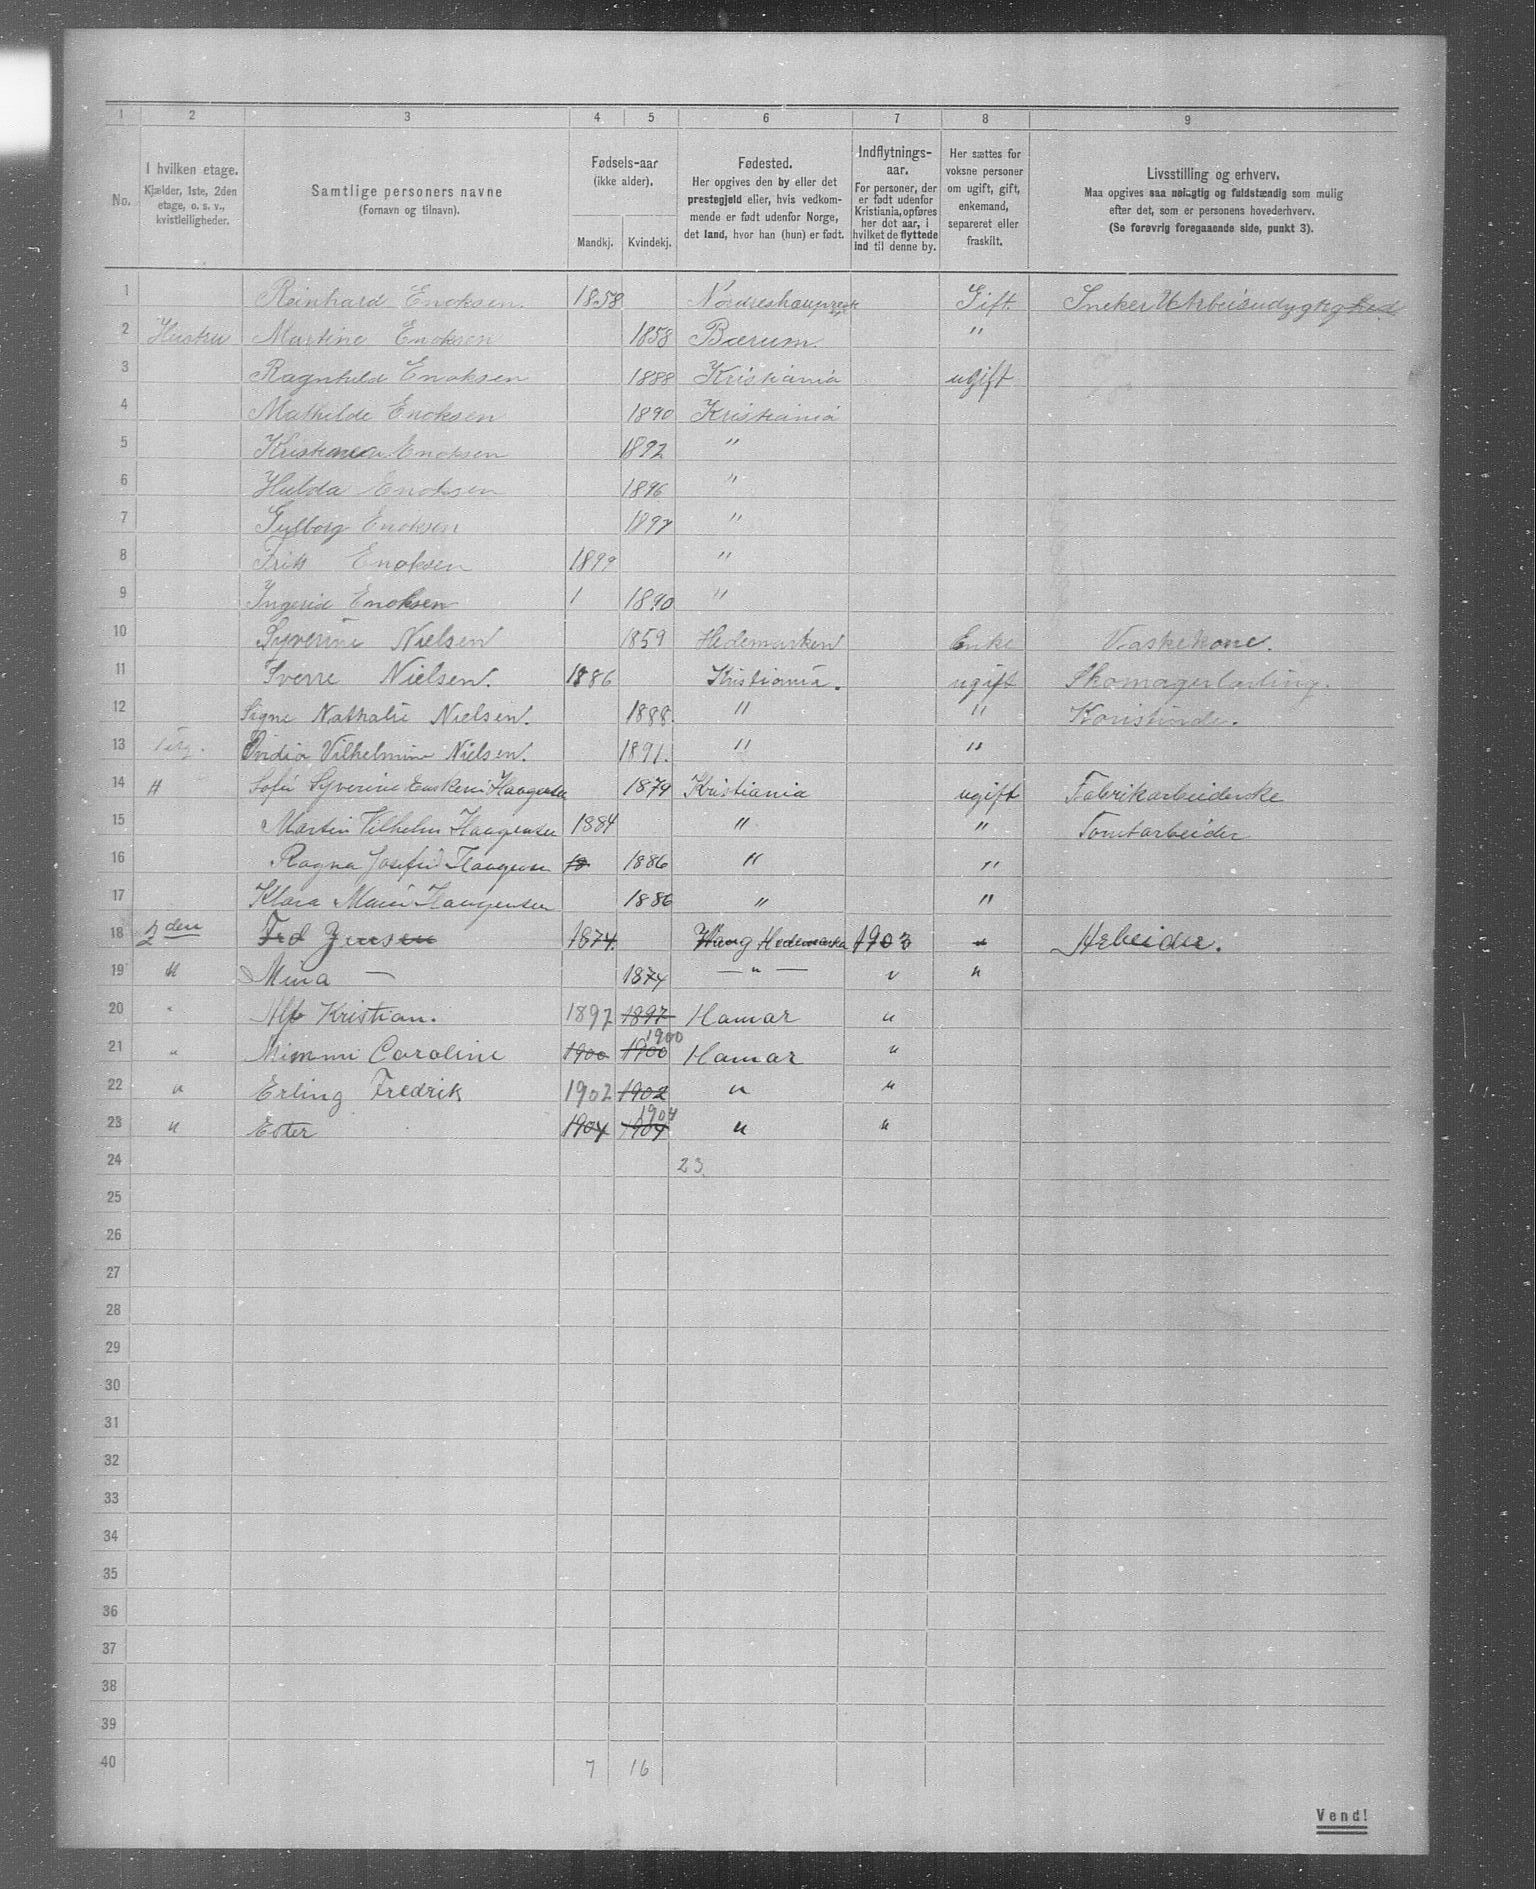 1 2 3 4 5 6 7 8 9
No.
I hvilken etage.
Kjælder, 1ste, 2den
etage, o. s. v.,
kvistleiligheder.
Samtlige personers navne
(Fornavn og tilnavn).
Fødsels-aar
(ikke alder).
Mandkj. Kvindekj.
Fødested.
Her opgives den by eller det
prestegjeld eller, hvis vedkom-
mende er født udenfor Norge,
det land, hvor han (hun) er født.
Indflytnings-
aar.
For personer, der
er født udenfor
Kristiania, opføres
her det aar, i
hvilket de flyttede
ind til denne by.
Her sættes for
voksne personer
om ugift, gift,
enkemand,
separeret eller
fraskilt.
Livsstilling og erhverv.
Maa opgives saa nøiagtig og fuldstændig som mulig
efter det, som er personens hovederhverv.
(Se forøvrig foregaaende side, punkt 3).
1 Reinhard Enoksen. 1858 Gift. Sneker
2 Hustru Martine Enoksen 1858 Bærum. "
3 Ragnhild Enoksen 1888 Kristiania ugift
4 Mathilde Enoksen 1890 Kristiania
5 Enoksen 1892 "
6 Hulda Enoksen 1896 "
7 Gulborg Enoksen 1897 "
8 Frits Enoksen 1899 "
9 Ingerid Enoksen 1 1890 "
10 Syverine Nielsen 1859 Hedemarken Enke Vaskekone.
11 Sverre Nielsen. 1886 Kristiania. ugift Skomagerlærling.
12 Signe Nathalie Nielsen. 1888. " "
13 Vilhelmine Nielsen. 1891. " "
14 " Sofie Syverine Haagensen 1879 Kristiania ugift Fabrikarbeiderske
15 Martin Vilhelm Haagensen 1884 " " Tomtarbeider
16 Ragna Josefine Haagensen 18 1886 " "
17 Klara Marie Haagensen 1886 " "
18 2den Fred Jensen 1874. Vang Hedemarken 1903 " Arbeider.
19 " Mina — 1874 — " — " "
20 " Alf Kristian. 1897 1897 Hamar "
1900
21 " Mimmi Caroline 1900 1900 Hamar "
22 " Erling Fredrik 1902 1902 " "
1904
23 " Ester 1904 1904 " "
24 23.
25
26
27
28
29
30
31
32
33
34
35
36
37
38
39
40 7 16
Vend!